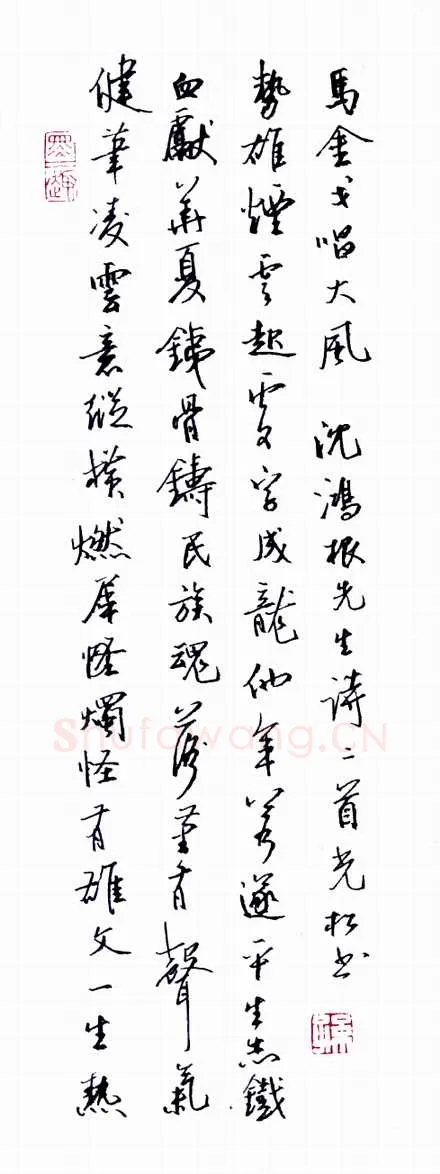 健筆凌雲意縱橫燃犀怪燭怪有雄文一生熱
血獻華夏鐵骨鑄民族魂落筆有聲氣
勢雄煙雲起處字成龍他年若遂平生志鐵
馬金戈唱大風 沈鴻根先生詩二首光松書
Shufawang.CN